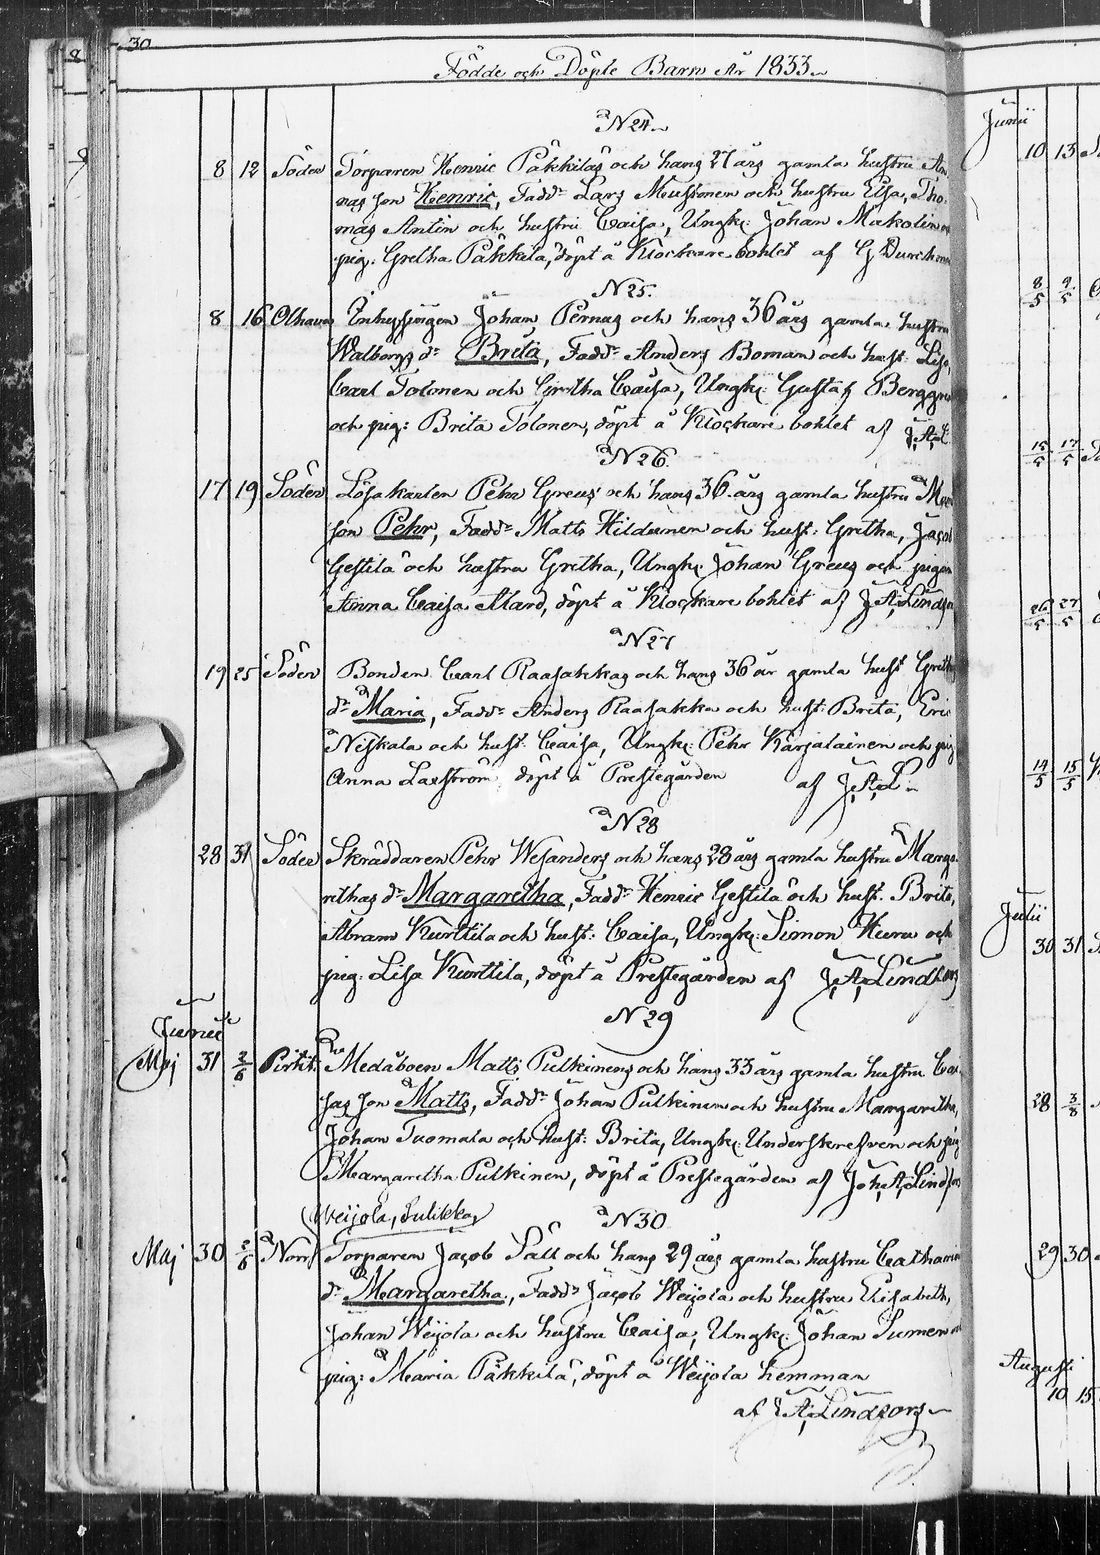 30
Födde och Döpte Barn År 1833
N 24
8 12 Söder Torparen Henric Päkkiläs och hans 27 års gamla hustru An-
nas son Henric, Fadd: Lars Mustonen och hustru Elsa, Tho-
mas Antin och hustru Caisa, Ungk: Johan Mäkelin o
pig: Gretha Päkkilä, döpt å Klockare bohlet af G Durchman
N 25.
8 16 Olhava Inhysingen Johan Pernus och hans 36 års gamla hustru
Walborgs dr Brita, Fadd: Anders Boman och hust: Lisa,
Carl Tolonen och Gretha Caisa, Ungk: Gustaf Berggren
och pig: Brita Tolonen, döpt å Klockare bohlet af J.A.L.
N 26.
17 19 Söder Lösa karlen Pehr Greus och hans 36 års gamla hustru
son Pehr, Fadd: Matts Hildunen och hust: Gretha, Jacob
Gestilä och hustru Gretha, Ungk: Johan Greus och pigan
Anna Caisa Alard, döpt å Klockare bohlet af J.A. Lindfors
N 27
19 25 Söder Bonden Carl Raasakkas och hans 36 år gamla hust Grethas
dr Maria, Fadd: Anders Raasakka och hust: Brita, Eric
Niskala och hust: Caisa, Ungk: Pehr Karjalainen och pig
Anna Laxström, döpt å Prestegården af J.A.L.
N 28
28 31 Söder Skräddaren Pehr Wesanders och hans 28 års gamla hustru Marga-
rethas dr Margaretha, Fadd: Henric Gestilä och hust. Brita,
Abram Kurttila och hust: Caisa, Ungk: Simon Kuru och
pig: Lisa Kurttila, döpt å Prestegården af J.A. Lindfors
Junii
N 29
Maj 31 2/6 Pirtit: Medåboen Matts Pulkinens och hans 33 års gamla hustru Cai-
sas son Matts, Fadd: Johan Pulkinen och hustru Margaretha,
Johan Tuomala och hust: Brita, Ungk: Underskrefven och pig
Margaretha Pulkinen, döpt å Prestegården af Joh. A. Lindfors
Weijola, Sulikka,
N 30
Maj 30 2/6 Norr Torparen Jacob Päll och hans 29 års gamla hustru Catharin
dr Margaretha, Fadd: Jacob Weijola och hustru Elisabeth,
Johan Weijola och hustru Caisa, Ungk: Johan Sumen o
pig: Maria Päkkilä, döpt å Weijola hemman
af J.A. Lindfors
Junii
10 13
8/5 9/5
15/5 17/5
26/5 27/5
14/5 15/5
Julii
30 31
28 3/8
29 30
Augusti
10 15